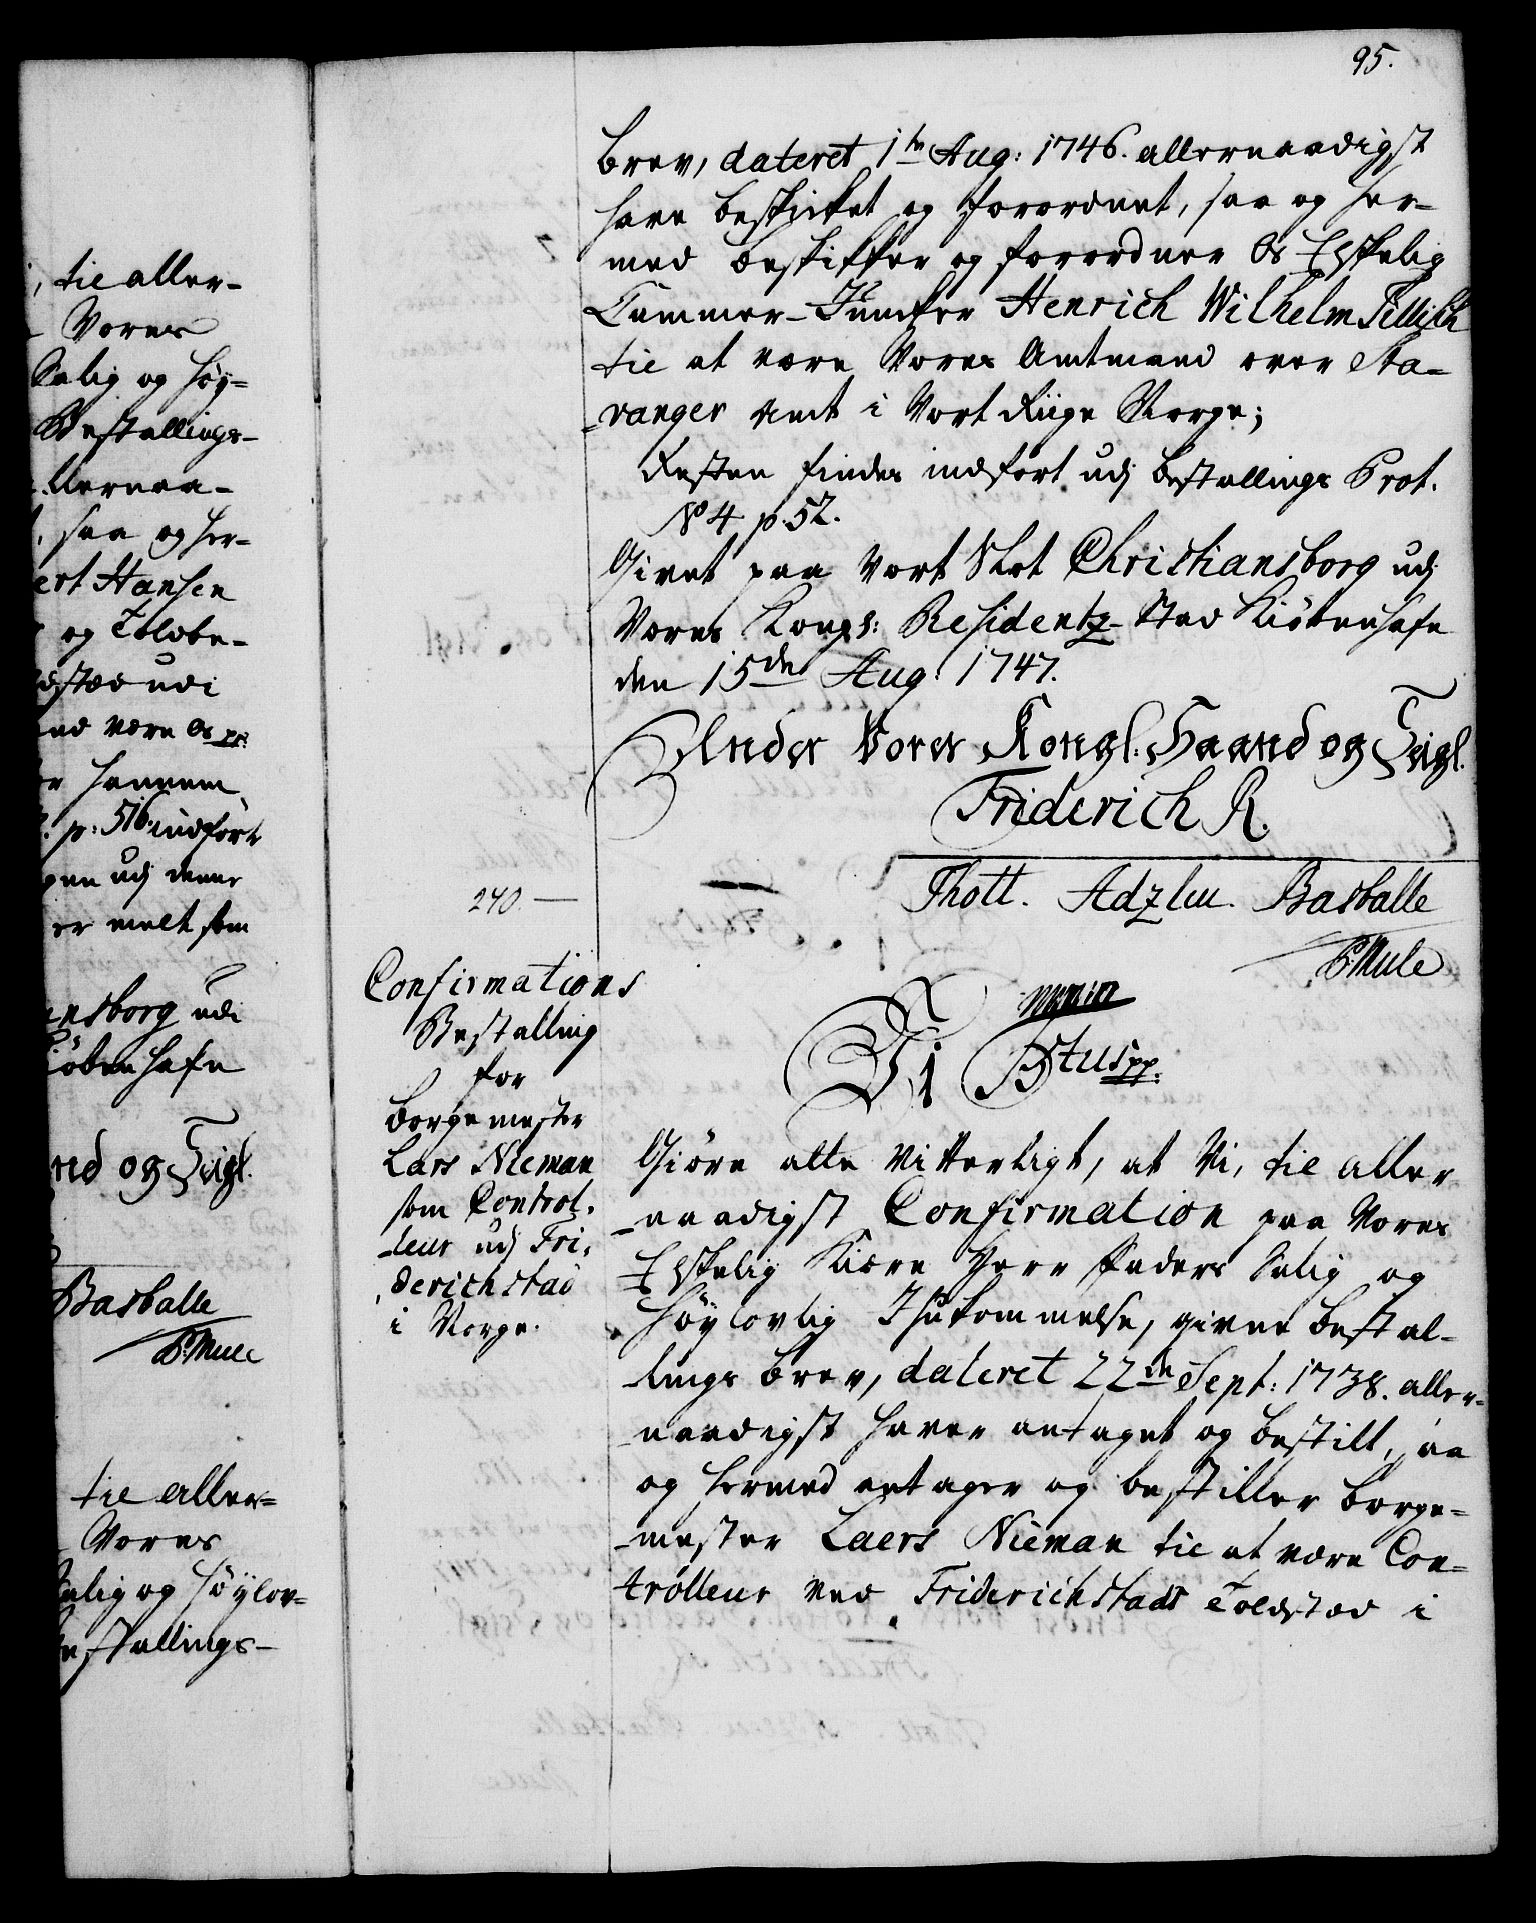 95.
Brev, dateret 1te Aug: 1746. allernaadigst
have beskikket og forordnet, saa og her-
med beskikker og forordner Os Elskelig
Cammer-Juncker Henrich Wilhelm Tillisch
til at være Vores Amtmand over Sta-
vanger Amt i Vort Riige Norge;
Resten findes indført udj Bestallings Prot.
No 4 p. 52.
Givet paa Vort Slot Christiansborg udj
Vores Kongl: Residentz-Stad Kiöbenhafn
den 15de Aug: 1747.
Under Vores Kongl. Haand og Seigl.
Friderich R.
Thott. Adzleu. Basballe
P. Mule
240.—
Confirmations
Bestalling
for
Borgemester
Lars Nieman
som Control-
leur udj Fri-
derichstad
i Norge.
Vi Ftus pp:
Giöre alle Vitterligt, at Vi, til aller
naadigst Confirmation paa Vores
Elskelig Kiære Herr Faders Salig og
Höylovlig Ihukommelse, given Bestal-
lings Brev, dateret 22de Sept: 1738. aller-
naadigst haver antaget og bestilt, saa
og hermed antager og bestiller Borge-
mester Laers Nieman til at være Con-
trolleur ved Friderichstads Toldsted i
til aller-
Vores
Salig og Höy-
Bestallings-
llernaa-
saa og her-
ert Hansen
og Toldbe-
dsted udi
ed være Os pp:
r hannem
p: 516. indfört
gen udj denne
er melt som
ansborg udi
iöbenhafn
nd og Seigl.
Basballe
P. Mule
til aller-
Vores
Salig og Höylov-
estallings-